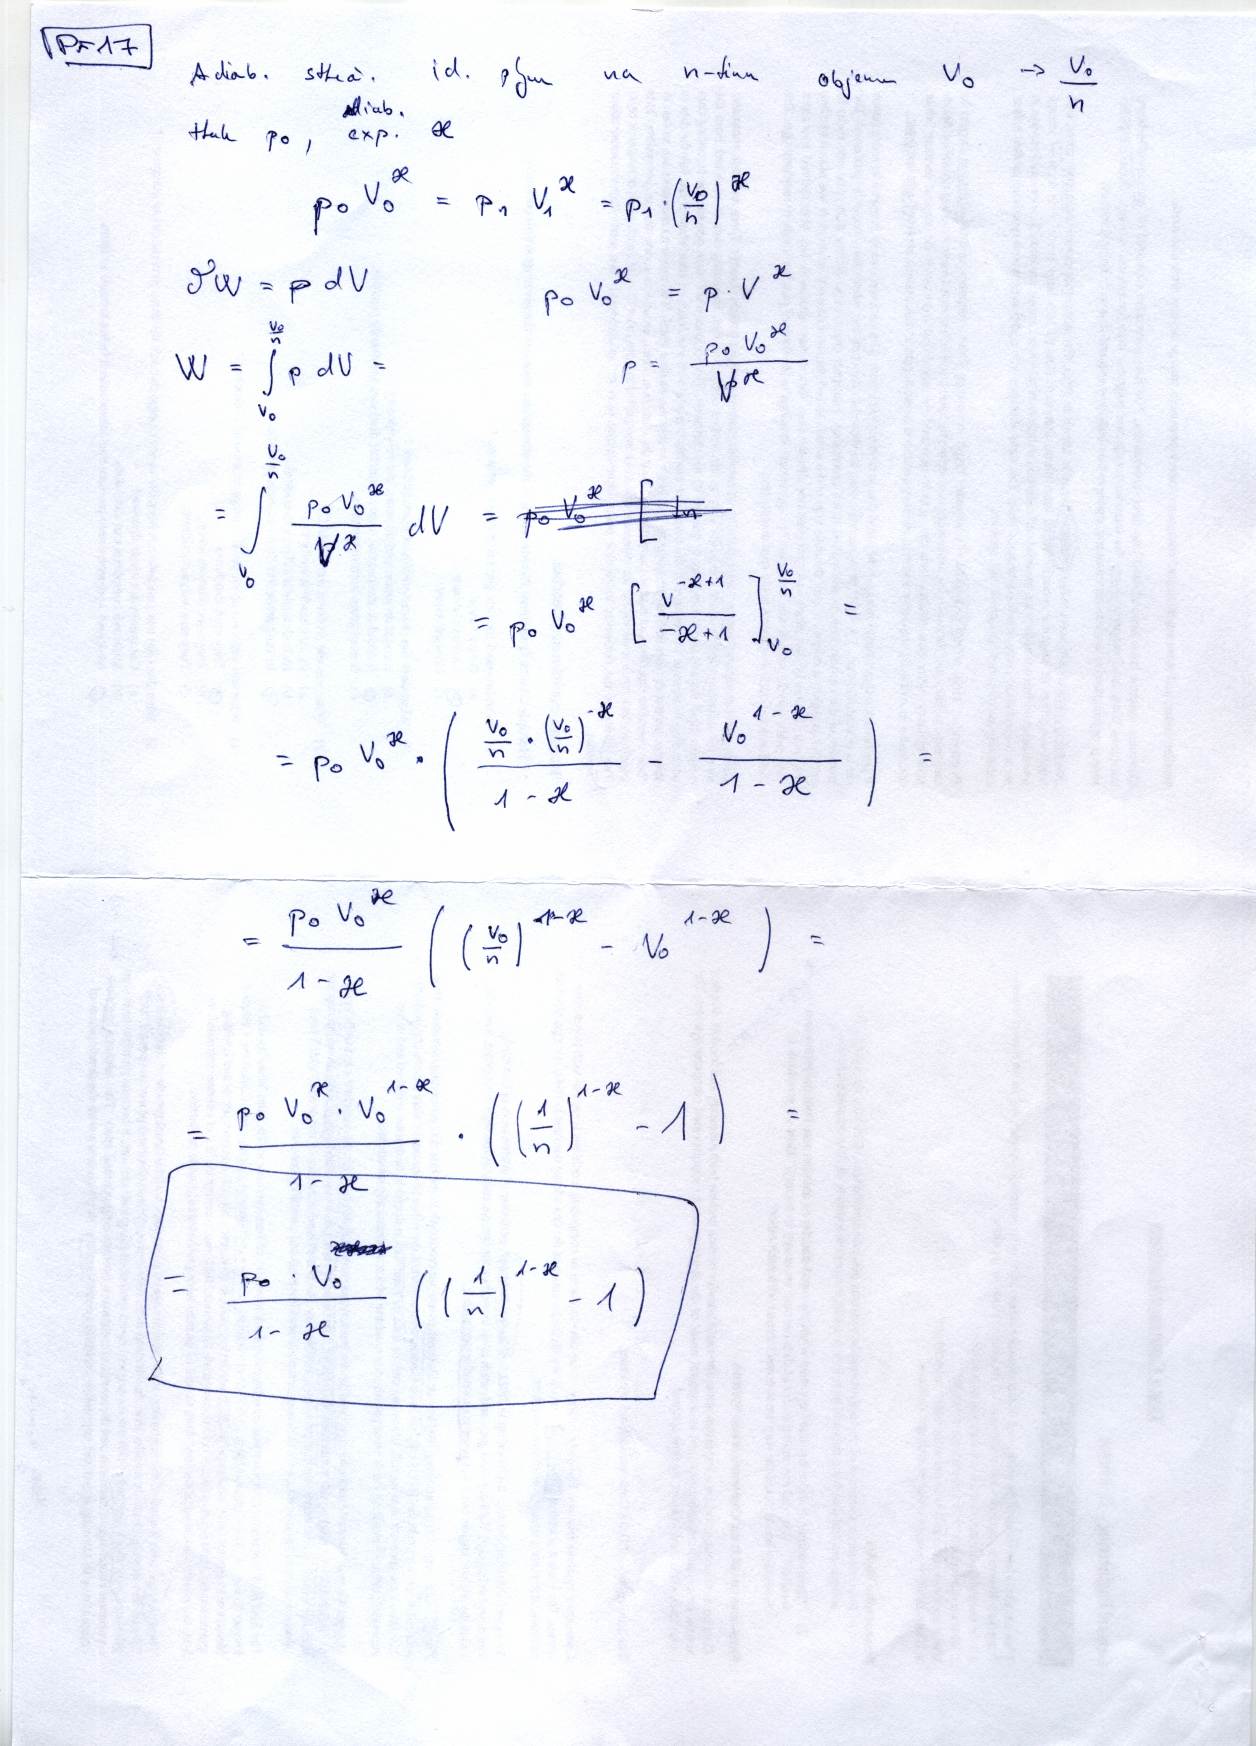 Př 17
Adiab. stlač. id. plynu na n-tinu objemu V₀ → V₀/n
tlak p₀, adiab. exp. ϰ
p₀ V₀^ϰ = p₁ V₁^ϰ = p₁ · (V₀/n)^ϰ
δW = p dV
p₀ V₀^ϰ = p · V^ϰ
W = ∫_{V₀}^{V₀/n} p dV =
p = p₀ V₀^ϰ / V^ϰ
= ∫_{V₀}^{V₀/n} p₀ V₀^ϰ / V^ϰ dV = p₀ V₀^ϰ [ ln
= p₀ V₀^ϰ [ V^{-ϰ+1} / (-ϰ+1) ]_{V₀}^{V₀/n} =
= p₀ V₀^ϰ · ( V₀/n · (V₀/n)^{-ϰ} / (1-ϰ) - V₀^{1-ϰ} / (1-ϰ) ) =
= p₀ V₀^ϰ / (1-ϰ) ( (V₀/n)^{1-ϰ} - V₀^{1-ϰ} ) =
= p₀ V₀^ϰ · V₀^{1-ϰ} / (1-ϰ) · ( (1/n)^{1-ϰ} - 1 ) =
= p₀ · V₀ / (1-ϰ) ( (1/n)^{1-ϰ} - 1 )